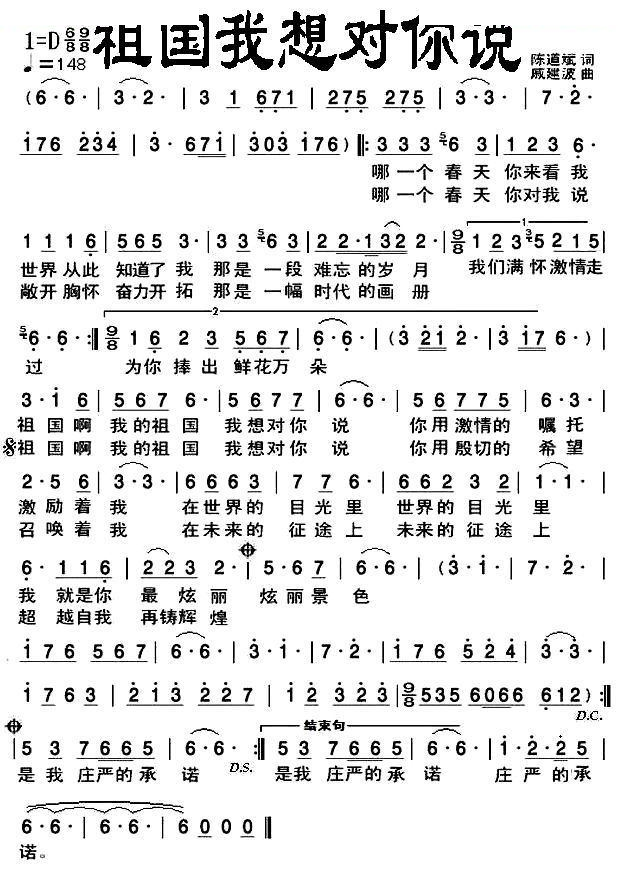 祖国我想对你说
1=D 6/8 9/8
♩=148
陈道斌 词
戚建波 曲
(6·6· | 3·2· | 3 1 671 | 275 275 | 3·5· | 7·2·
176 234 | 3· 671 | 303 176) ‖: 333 6 3 | 1 2 3 6·
哪一个春天你来看我
哪一个春天你对我说
1 1 1 6 | 565 3· | 3·3 3 6 3 | 2 2·132 2· | 9/8 1 2 3 3 5 2 1 5
世界从此 知道了我 那是一段 难忘的岁月 我们满怀激情走
敞开胸怀 奋力开拓 那是一幅 时代的画册
6·6· :‖ 9/8 1 6 2 3 567 | 6·6· | (3 21 2· | 3 17 6·)
过 为你捧出鲜花万朵
3·1 6 | 5 6 7 6 | 5 6 7 5 7 | 6·6· | 5 6 7 7 5 | 6·3·
祖国啊 我的祖国 我想对你 说 你用激情的 嘱托
祖国啊 我的祖国 我想对你 说 你用殷切的 希望
2·5 6 | 3·3· | 6 6 6 3 | 7 7 6 | 6 6 2 3 2 | 1·1·
激励着 我 在世界的 目光里 世界的目光里
召唤着 我 在未来的 征途上 未来的征途上
6· 1 1 6 | 2 2 3 2· | 5·6 7 | 6·6· | (3·1· | 7·2·
我 就是你 最炫丽 炫丽景色
超越自我 再铸辉煌
176 567 | 6·6· | 3·1· | 7·2· | 176 524 | 3·3·
1763 | 213 227 | 12 323 | 9/8 535 6066 612) :‖
D.C.
结束句
5 3 7 6 6 5 | 6·6· :‖ 5 3 7 6 6 5 | 6·6· | 1·2·2 5
是我 庄严的承 诺 D.S. 是我 庄严的承 诺 庄严的承
6·6· | 6·6· | 6 0 0 0 ‖
诺。